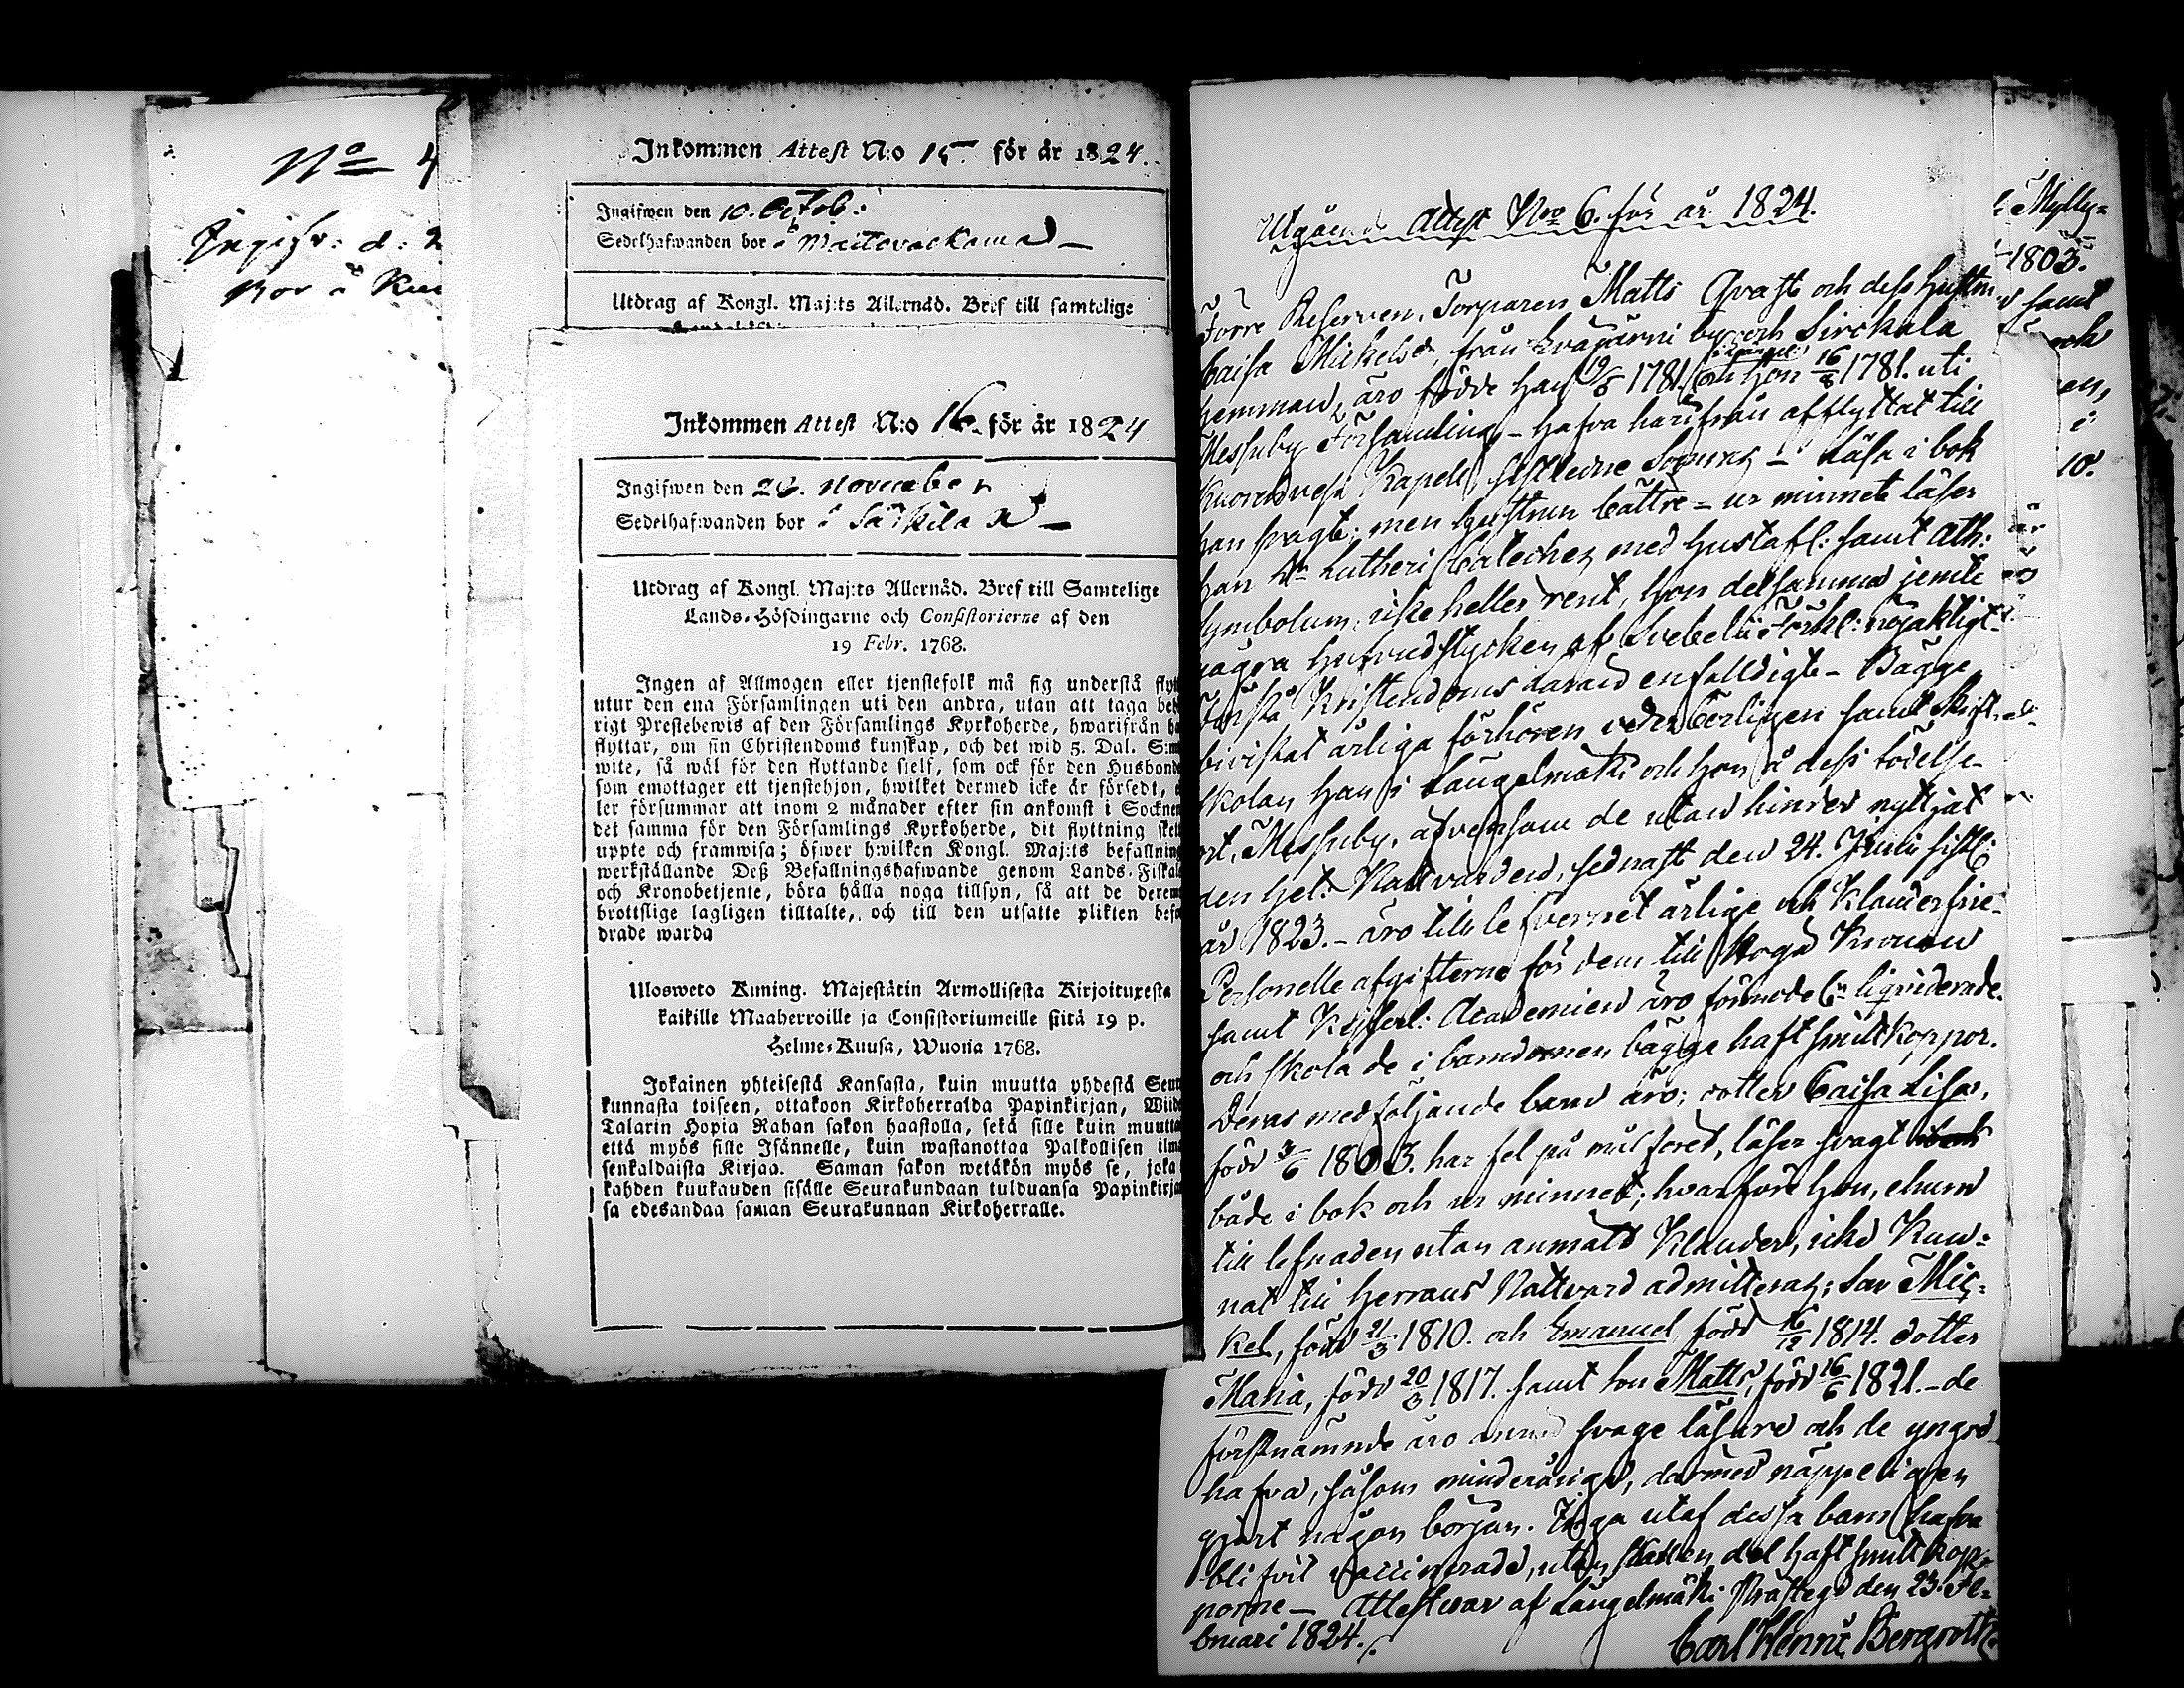 No 4
Ingifv: d: 2
Bor i Kuo
Inkommen Attest N:o 15 för år 1824.
Ingifwen den 10. Octob:
Sedelhafwanden bor å
Utdrag af Kongl. Maj:ts Allernåd. Bref till samtelige
Inkommen Attest N:o 16 för år 1824
Ingifwen den 26. November
Sedelhafwanden bor å Särkilax
Utdrag af Kongl. Maj:ts Allernåd. Bref till Samtelige
Lands-Höfdingarne och Consistorierne af den
19 Febr. 1768.
Ingen af Allmogen eller tjenstefolk må sig understå flyt
utur den ena Församlingen uti den andra, utan att taga beh
rigt Prestebewis af den Församlings Kyrkoherde, hwarifrån ha
flyttar, om sin Christendoms kunskap, och det wid 5. Dal. S:m
wite, så wäl för den flyttande sjelf, som ock för den Husbonde
som emottager ett tjenstehjon, hwilket dermed icke är försedt, e
ler försummar att inom 2 månader efter sin ankomst i Socknen
det samma för den Församlings Kyrkoherde, dit flyttning sked
uppte och framwisa; öfwer hwilken Kongl. Maj:ts befallning
werkställande Deß Befallningshafwande genom Lands-Fiskale
och Kronobetjente, böra hålla noga tillsyn, så att de derem
brottslige lagligen tilltalte, och till den utsatte plikten befo
drade warda
Ulosweto Kuning. Majestätin Armollisesta Kirjoituxesta
kaikille Maaherroille ja Consistoriumeille siitä 19 p.
Helme-Kuusa, Wuona 1768.
Jokainen yhteisestä Kansasta, kuin muutta yhdestä Seura
kunnasta toiseen, ottakoon Kirkoherralda Papinkirjan, Wiide
Talarin Hopia Rahan sakon haastolla, sekä sille kuin muutta
että myös sille Isännelle, kuin wastanottaa Palkollisen ilma
senkaldaista Kirjaa. Saman sakon wetäkön myös se, joka
kahden kuukauden sisälle Seurakundaan tulduansa Papinkirja
sa edesandaa saman Seurakunnan Kirkoherralle.
Utgående Attest No 6. för år 1824.
Förre Reserven, Torparen Matts Qvast och dess hustru
Caisa Michelsd. från Eväjärvi by och Sirckala
hemman, äro födde han 19/5 1781. och hon 16/8 1781. uti
Messuby Församling - hafva härifrån afflyttat till
Kuorevesi Kapell sistledne Sommar - Läsa i bok
han svagt; men hustrun bättre - ur minnet läser
han Dr Lutheri Cateches med Hustafl: samt Ath:
Symbolum, icke heller rent, hon detsamma jemte
några hufvudstycken af Svebelii Förkl: nöjaktigt
förstå Kristendoms läran enfalldigt - Bägge
bivistat årliga förhören vederbörligen samt Skrift-
skolan han i Längelmäki och hon å dess födelse-
ort, Messuby, äfvensom de utan hinder nyttjat
den hel: Nattvarden, sednast den 24. Junii sistl:
år 1823. - äro till lefvernet ärlige och klanderfrie.
Personelle afgifterne för dem till Höga Kronan
samt Kejserl: Academien äro förmodel:n liqviderade.
och skola de i barndomen bägge haft smittkoppor.
Deras medföljande barn äro; dotter Caisa Lisa,
född 3/6 1803. har fel på målföret, läser svagt
både i bok och ur minnet; hvarföre hon, ehuru
till lefnaden utan anmäldt klander, icke kun-
nat till Herrans Nattvard admitteras; son Mic-
kel, född 21/3 1810. och Emanuel, född 16/12 1814. dotter
Maria, född 20/3 1817. samt son Matts, född 16/6 1821. - de
förstnämnde äro ännu svage läsare och de yngre
hafva, såsom minderårige, därmed näppeligen
gjort någon början. Inga utaf dessa barn hafva
blifvit vaccinerade, utan största del haft smittkop-
porne - Attesterar af Längelmäki Prästegd den 23. Fe-
bruari 1824.
Carl Henric Bergroth
Mylly-
1803.
samt
och
en,
i
10.